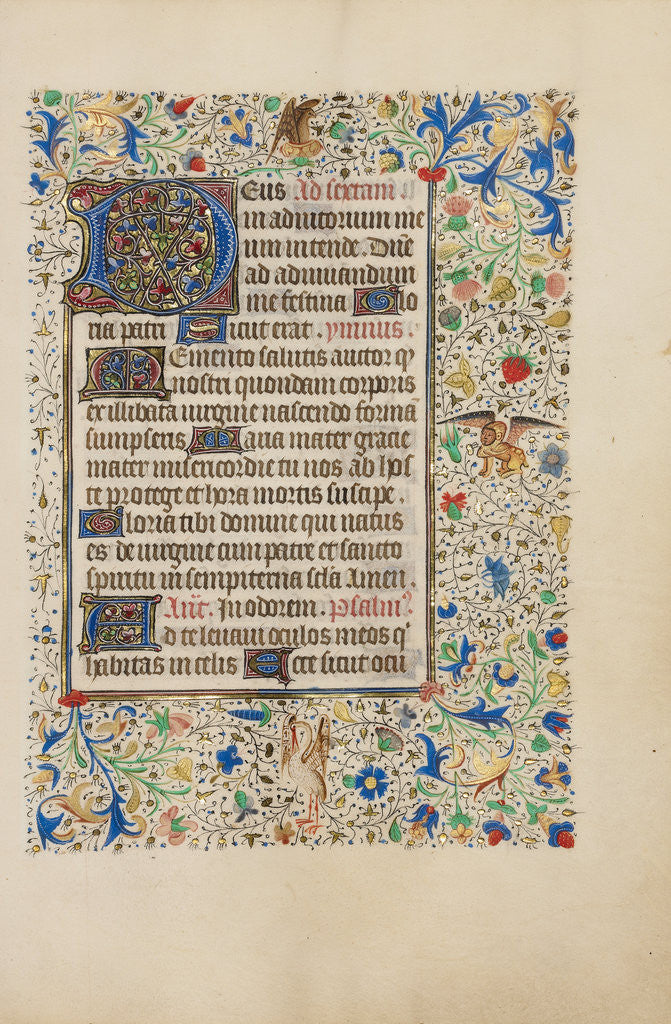 Deus Ad sextam.
in adiutorium me
um intende. Dne
ad adiuuandum
me festina Glo
ria patri Sicut erat. ymnus.
Memento salutis auctor q
nostri quondam corporis
ex illibata uirgine nascendo formā
sumpseris Maria mater gracie
mater misericordie tu nos ab hos
te protege et hora mortis suscipe.
Gloria tibi domine qui natus
es de uirgine cum patre et sancto
spiritu in sempiterna scla Amen.
Ant. In odorem. Psalm
Ad te leuaui oculos meos q
habitas in celis Ecce sicut ocu